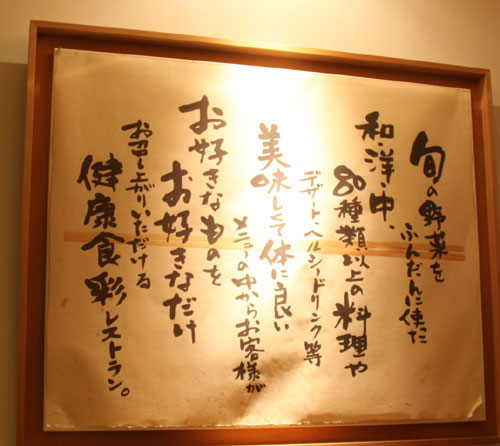 旬の野菜を
ふんだんに使った
和・洋・中、
80種類以上の料理や
デザート・ヘルシードリンク等
美味しくて体に良い
メニューの中からお客様が
お好きなものを
お好きなだけ
お召し上がりいただける
健康食彩レストラン。